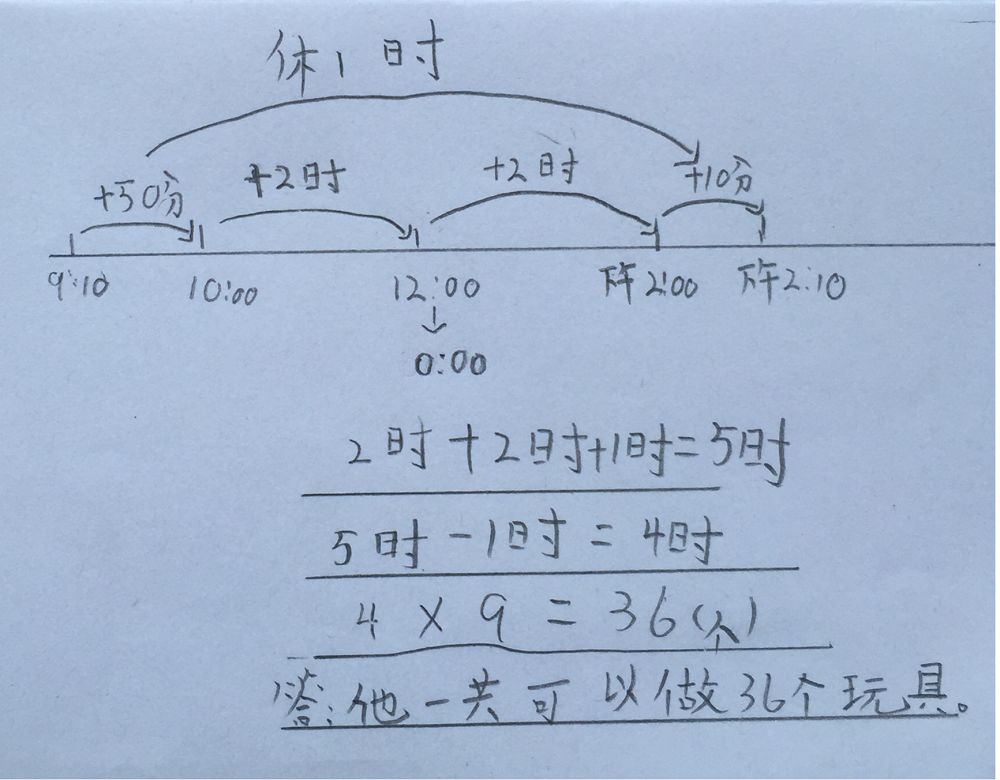 休1时
+50分 +2时 +2时 +10分
9:10 10:00 12:00 下午2:00 下午2:10
0:00
2时+2时+1时=5时
5时-1时=4时
4×9=36(个)
答:他一共可以做36个玩具。